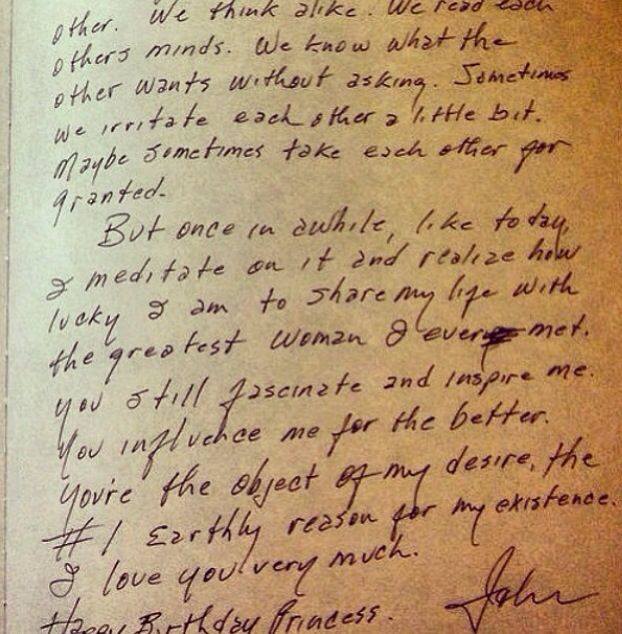 other. We think alike. We read each
others minds. We know what the
other wants without asking. Sometimes
we irritate each other a little bit.
Maybe sometimes take each other for
granted.
But once in awhile, like today,
I meditate on it and realize how
lucky I am to share my life with
the greatest woman I ever met.
You still fascinate and inspire me.
You influence me for the better.
You're the object of my desire, the
#1 Earthly reason for my existence.
I love you very much.
Happy Birthday Princess.
John